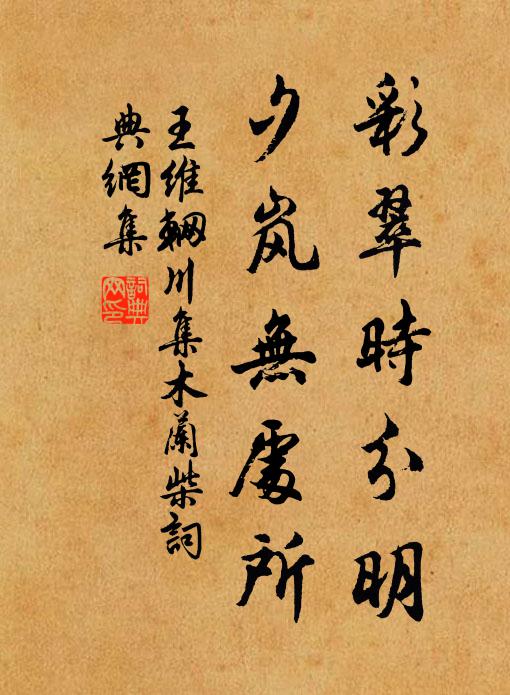 彩翠時分明
夕岚無處所
王維輞川集木蘭柴詞
典網集
詞典網印